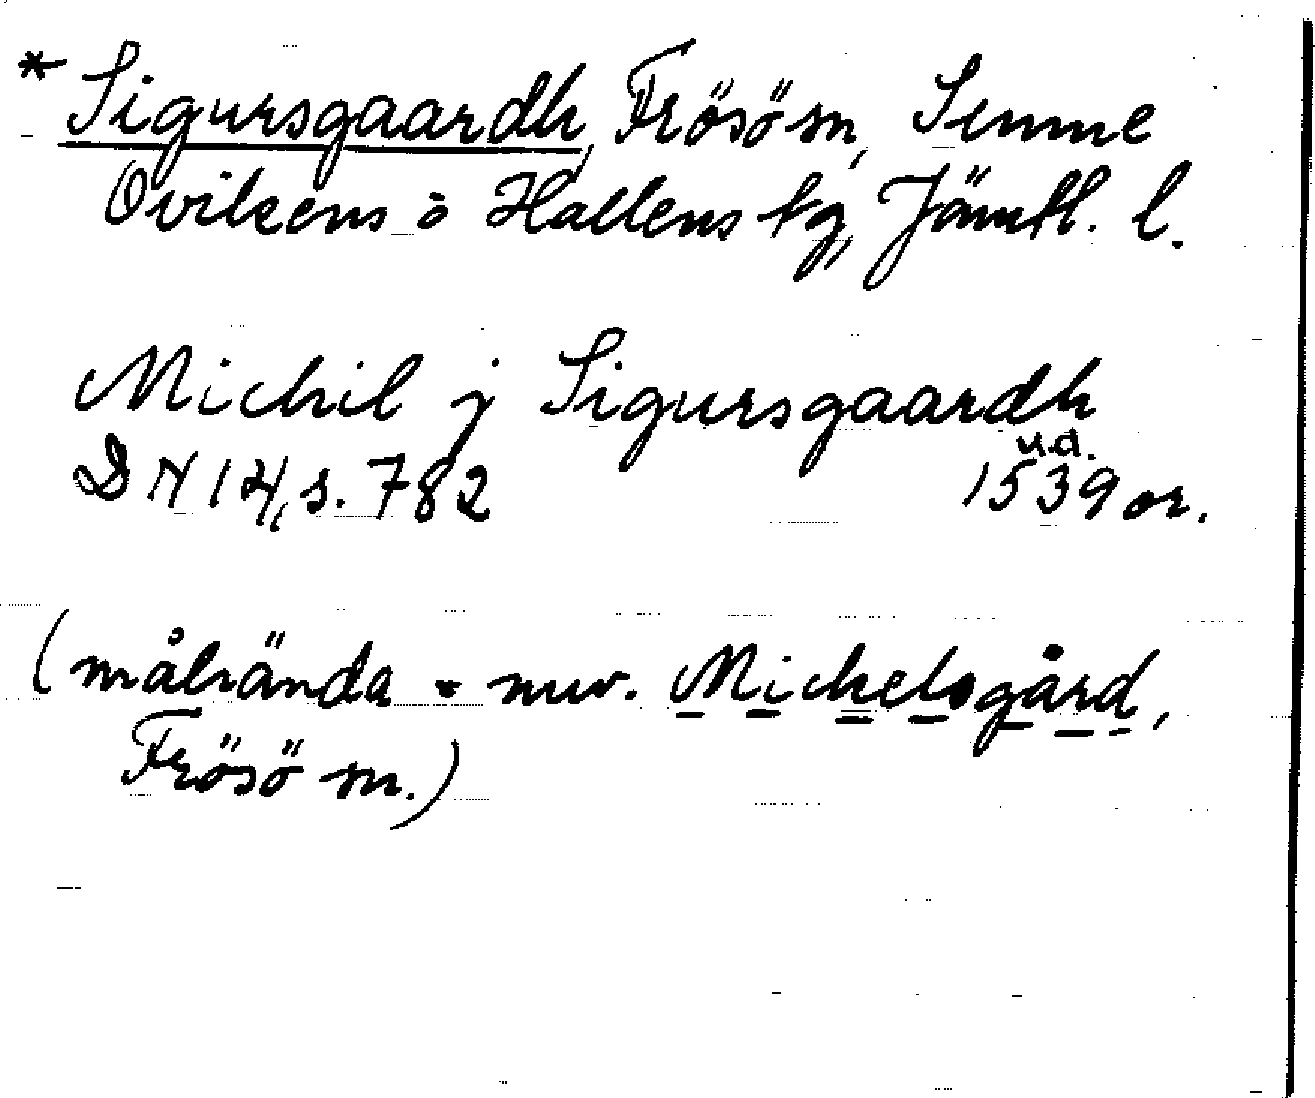 * Sigursgaardh, Frösö sn, Sunne
Ovikens o Hallens tg, Jämtl. l.
Michil j Sigursgaardh
u.d.
DN 14, s. 782 1539 or.
(målrända = nuv. Michelsgård,
Frösö sn.)